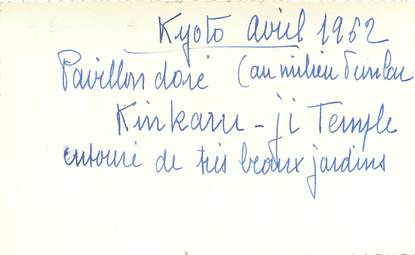 Kyoto avril 1952
Pavillon doré (au milieu d'un lac
Kinkaru-ji Temple
entouré de très beaux jardins